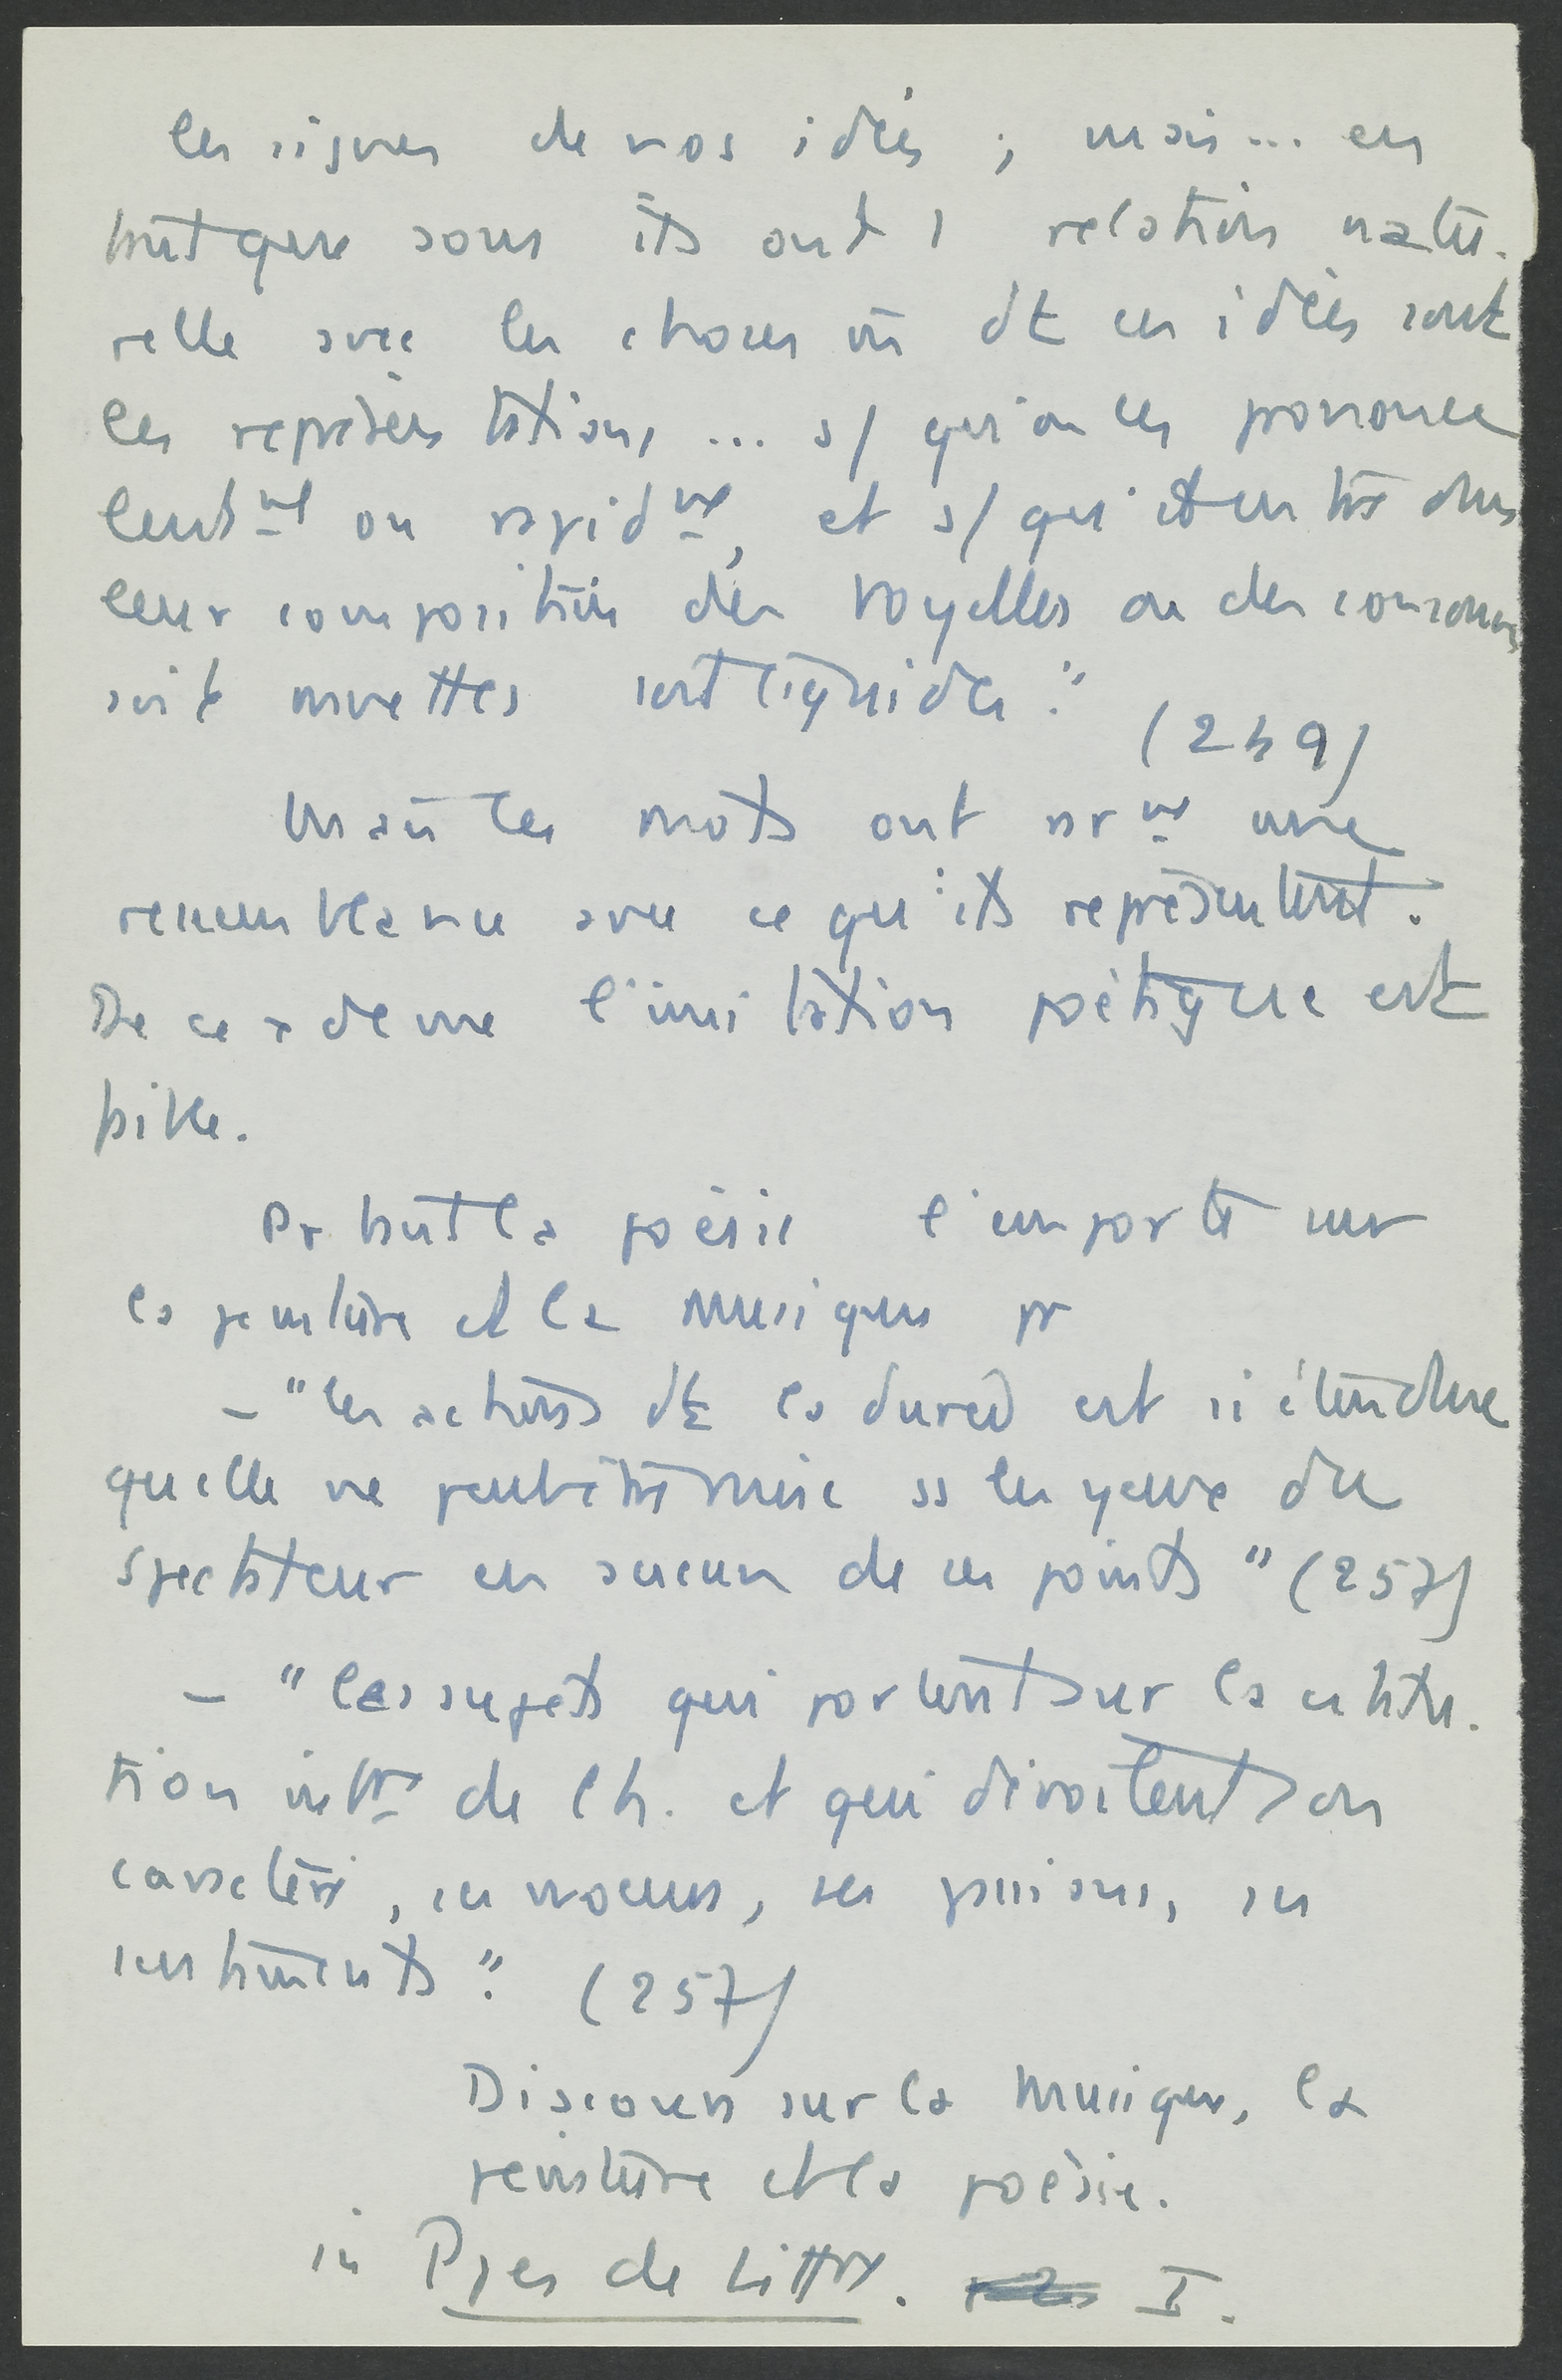 les signes de nos idées ; mais ... en
tant que sons ils ont 1 relation natu-
relle avec les choses m̄ dt ces idées sont
les représentations, ... s/ qu'on les prononce
lentmt ou rapidmt, et s/ qu'il entre dans
leur composition des voyelles ou des consonnes
soit muettes soit liquides." (249)
Mais les mots ont rarmt une
ressemblance avec ce qu'ils représentent.
De ce a deme l'imitation poétique est
faible.
Partout la poésie l'emporte sur
la peinture et la musique pr
- "les actions dt la durée est si étendue
qu'elle ne peut être mise ss les yeux du
spectateur en aucun de ces points" (257)
- "les sujets qui portent sur la consti-
tion intre de l'h. et qui dévoilent son
caractère, ses moeurs, ses passions, ses
sentiments." (257)
Discours sur la musique, la
peinture et la poésie.
in Ppes de Littre. I.